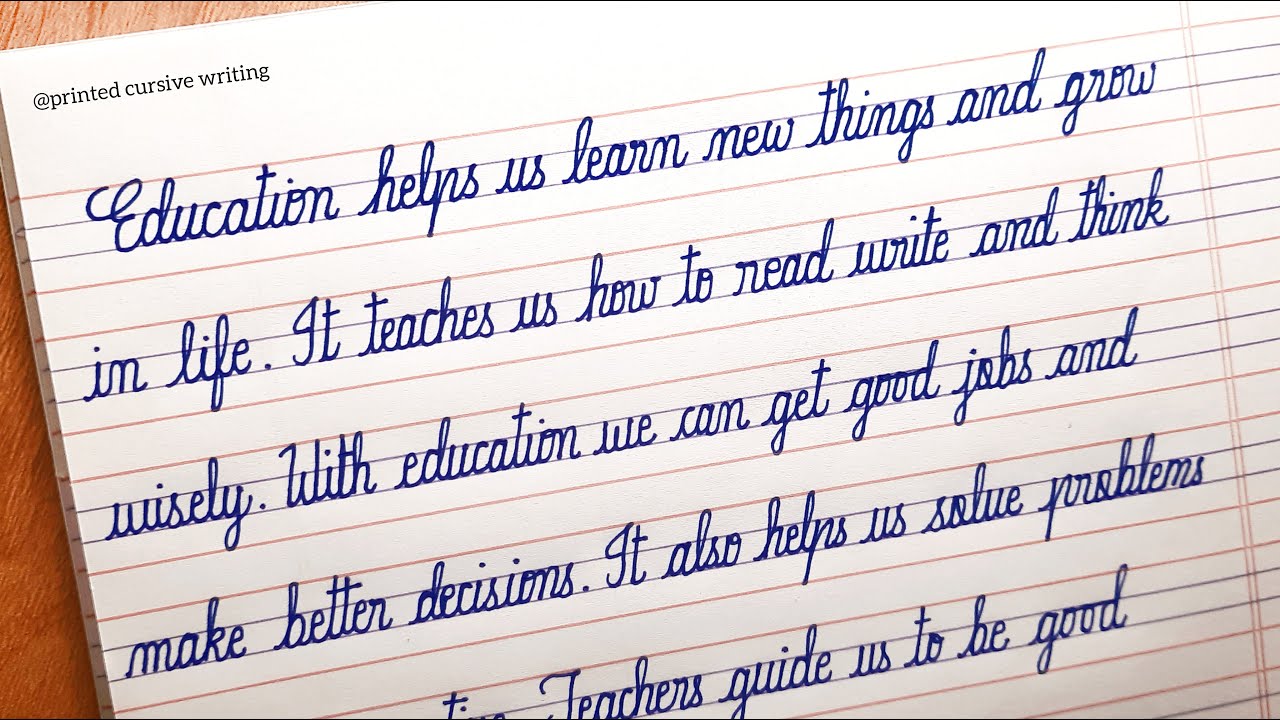 @printed cursive writing
Education helps us learn new things and grow
in life. It teaches us how to read write and think
wisely. With education we can get good jobs and
make better decisions. It also helps us solve problems
Teachers guide us to be good